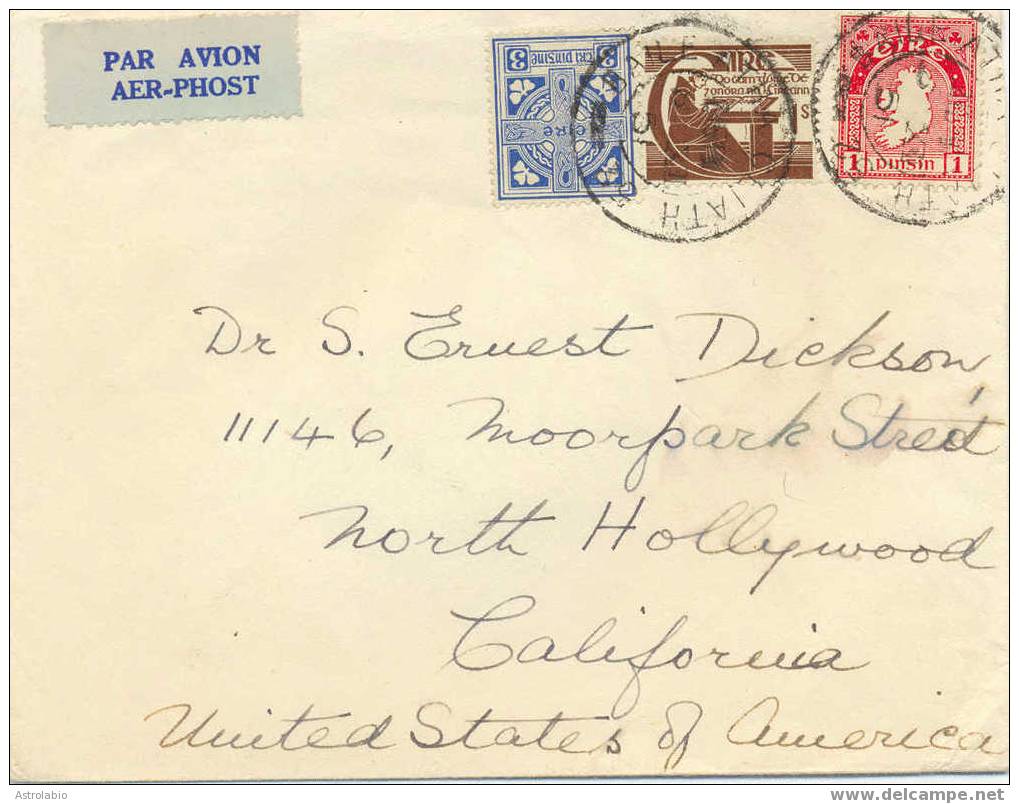 PAR AVION
AER-PHOST
3 3
TRÍ PINGINE
ÉIRE
ÉIRE
Do ċum glóire Dé
7 onóra na hÉireann
S
ÉIRE
1 PINGIN 1
BAILE
CLIATH
Dr S. Ernest Dickson,
11146, Moorpark Street
North Hollywood
California
United States of America
Astrolabio
www.delcampe.net